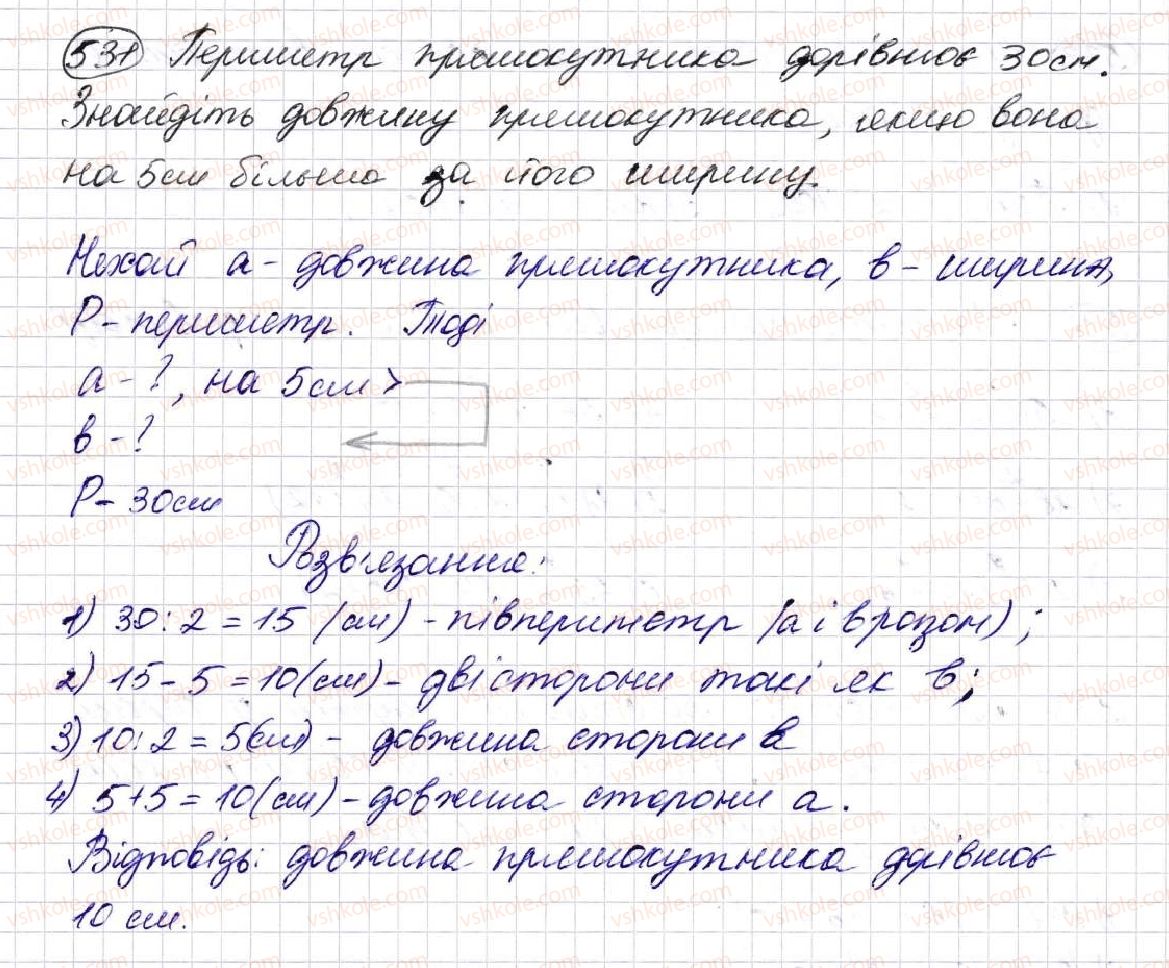 531 Периметр прямокутника дорівнює 30см.
Знайдіть довжину прямокутника, якщо вона
на 5см більша за його ширину.
Нехай а - довжина прямокутника, в - ширина,
Р - периметр. Тоді
а - ?, на 5см >
в - ?
Р - 30см
Розв'язання:
1) 30:2=15 (см) - півпериметр (а і в разом);
2) 15-5=10(см) - дві сторони такі як в;
3) 10:2=5(см) - довжина сторони в
4) 5+5=10(см) - довжина сторони а.
Відповідь: довжина прямокутника дорівнює
10 см.